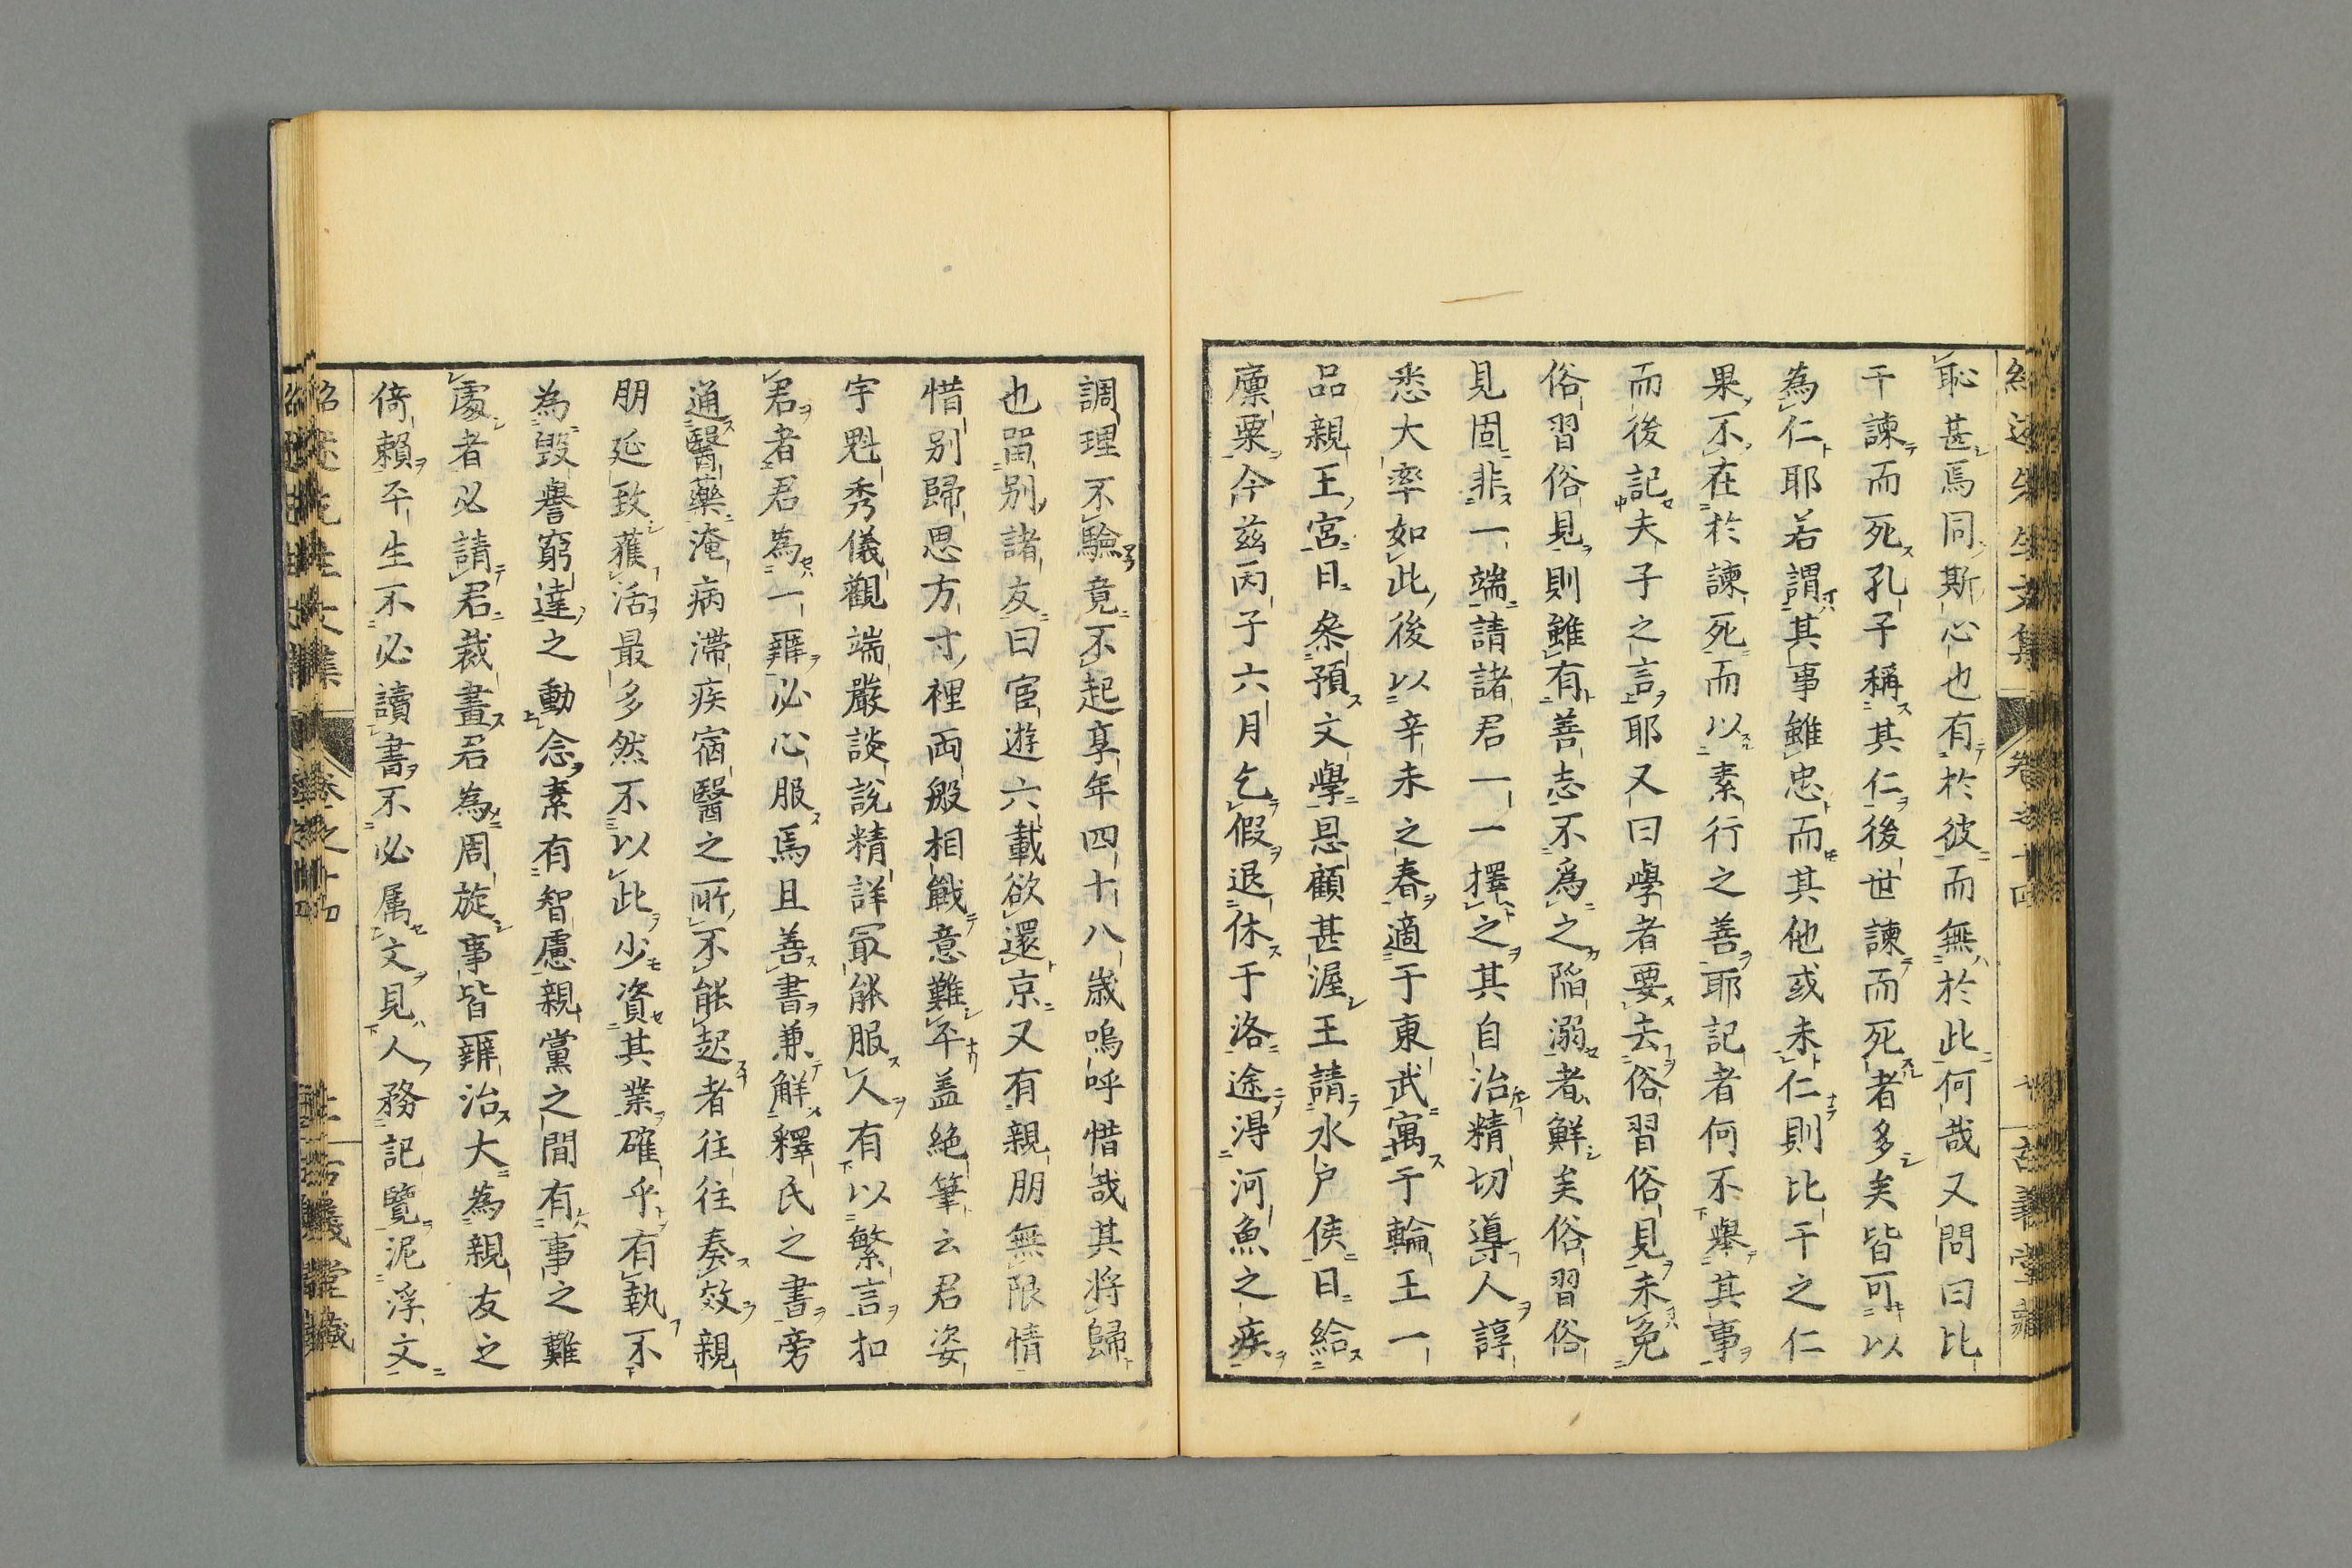 恥甚焉同斯心也有於彼而無於此何哉又問曰比
干諫而死孔子稱其仁後世諫而死者多矣皆可以
為仁耶若謂其事雖忠而其他或未仁則比干之仁
果不在於諫死而以素行之善耶記者何不舉其事
而後記夫子之言耶又曰學者要去俗習俗見未免
俗習俗見則雖有善志不為之陷溺者鮮矣俗習俗
見固非一端請諸君一一擇之其自治精切導人諄
悉大率如此後以辛未之春適于東武寓于輪王一
品親王宮日叅預文學恩顧甚渥王請水戶侯日給
廩粟今茲丙子六月乞假退休于洛途淂河魚之疾
調理不驗竟不起享年四十八歲嗚呼惜哉其將歸
也畱別諸友曰宦遊六載欲還京又有親朋無限情
惜別歸思方寸裡両般相戰意難平盖絶筆云君姿
宇魁秀儀觀端嚴談說精詳冣能服人有以繁言扣
君者君為一辨必心服焉且善書兼解釋氏之書旁
通醫藥淹病滯疾宿醫之所不能起者往往奏效親
朋延致蒦活最多然不以此少資其業確乎有執不
為毀譽窮達之動念素有智慮親黨之間有事之難
處者必請君裁畫君為周旋事皆辨治大為親友之
倚賴平生不必讀書不必属文見人務記覽泥浮文
紹述先生文集 卷之十四 古義堂藏